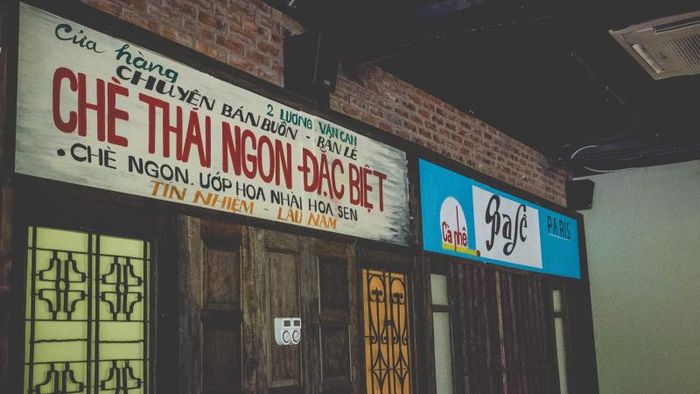 Cửa hàng
CHUYÊN BÁN BUÔN - BÁN LẺ
2 LƯƠNG VĂN CAN
CHÈ THÁI NGON ĐẶC BIỆT
• CHÈ NGON. ƯỚP HOA NHÀI HOA SEN
TÍN NHIỆM - LÂU NĂM
Cà phê
PARIS